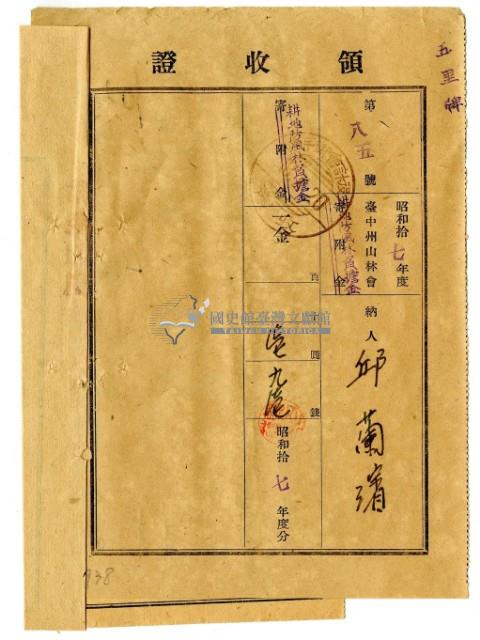 五里牌
領收證
第八五號
昭和拾七年度
臺中州山林會
寄附金
耕地防風林負擔金
納人 邱蘭濱
寄附金
耕地防風林負擔金
一金
百
圓
九
錢
昭和拾七年度分
國史館臺灣文獻館
TAIWAN HISTORICA
938